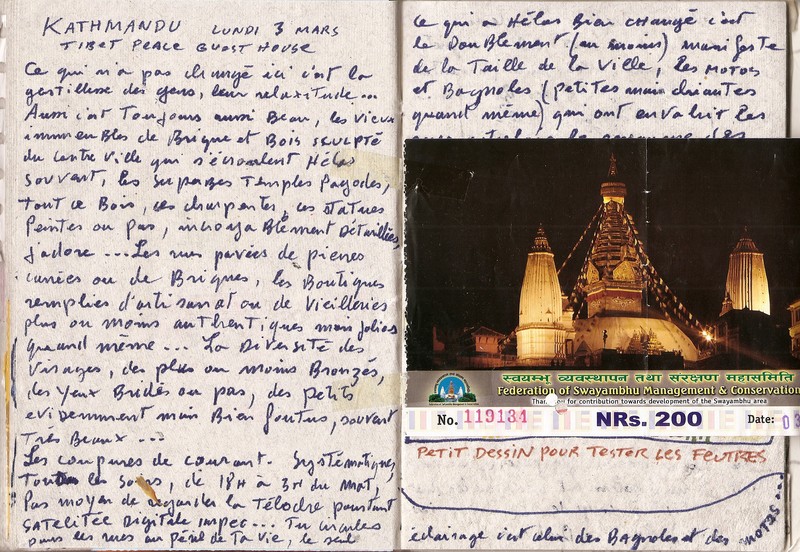 KATHMANDU LUNDI 3 MARS
TIBET PEACE GUEST HOUSE
Ce qui n'a pas changé ici c'est la
gentillesse des gens, leur relaxitude...
Aussi c'est Toujours aussi Beau, les vieux
immeubles de Brique et Bois sculpté
du centre ville qui s'écroulent Hélas
souvent, les superbes Temples Pagodes,
tout ce Bois, ces charpentes, ces statues
Peintes ou pas, incroyablement Détaillées,
j'adore... Les rues pavées de pierres
carrées ou de Briques, les Boutiques
remplies d'artisanat ou de Vieilleries
plus ou moins authentiques mais jolies
quand même... La Diversité des
Visages, des plus ou moins Bronzés,
des Yeux Bridés ou pas, des petits
evidemment mais Bien foutus, souvent
Très Beaux...
Les coupures de courant. Systématiques,
Tous les soirs, de 18H à 3H du mat,
Pas moyen de regarder la Téloche pourtant
SATELITEE Digitale impec... Tu circules
dans les rues au péril de Ta Vie, le seul
Ce qui a Hélas Bien changé c'est
le Doublement (au moins) manifeste
de la Taille de la Ville, les MOTOS
et Bagnoles (petites mais chiantes
quand même) qui ont envahit les
स्वयम्भू व्यवस्थापन तथा संरक्षण महासमिति
Federation of Swayambhu Management & Conservation
for contribution towards development of the Swayambhu area
No. 119134 NRs. 200 Date: 03
PETIT DESSIN POUR TESTER LES FEUTRES
éclairage c'est celui des Bagnoles et des motos...